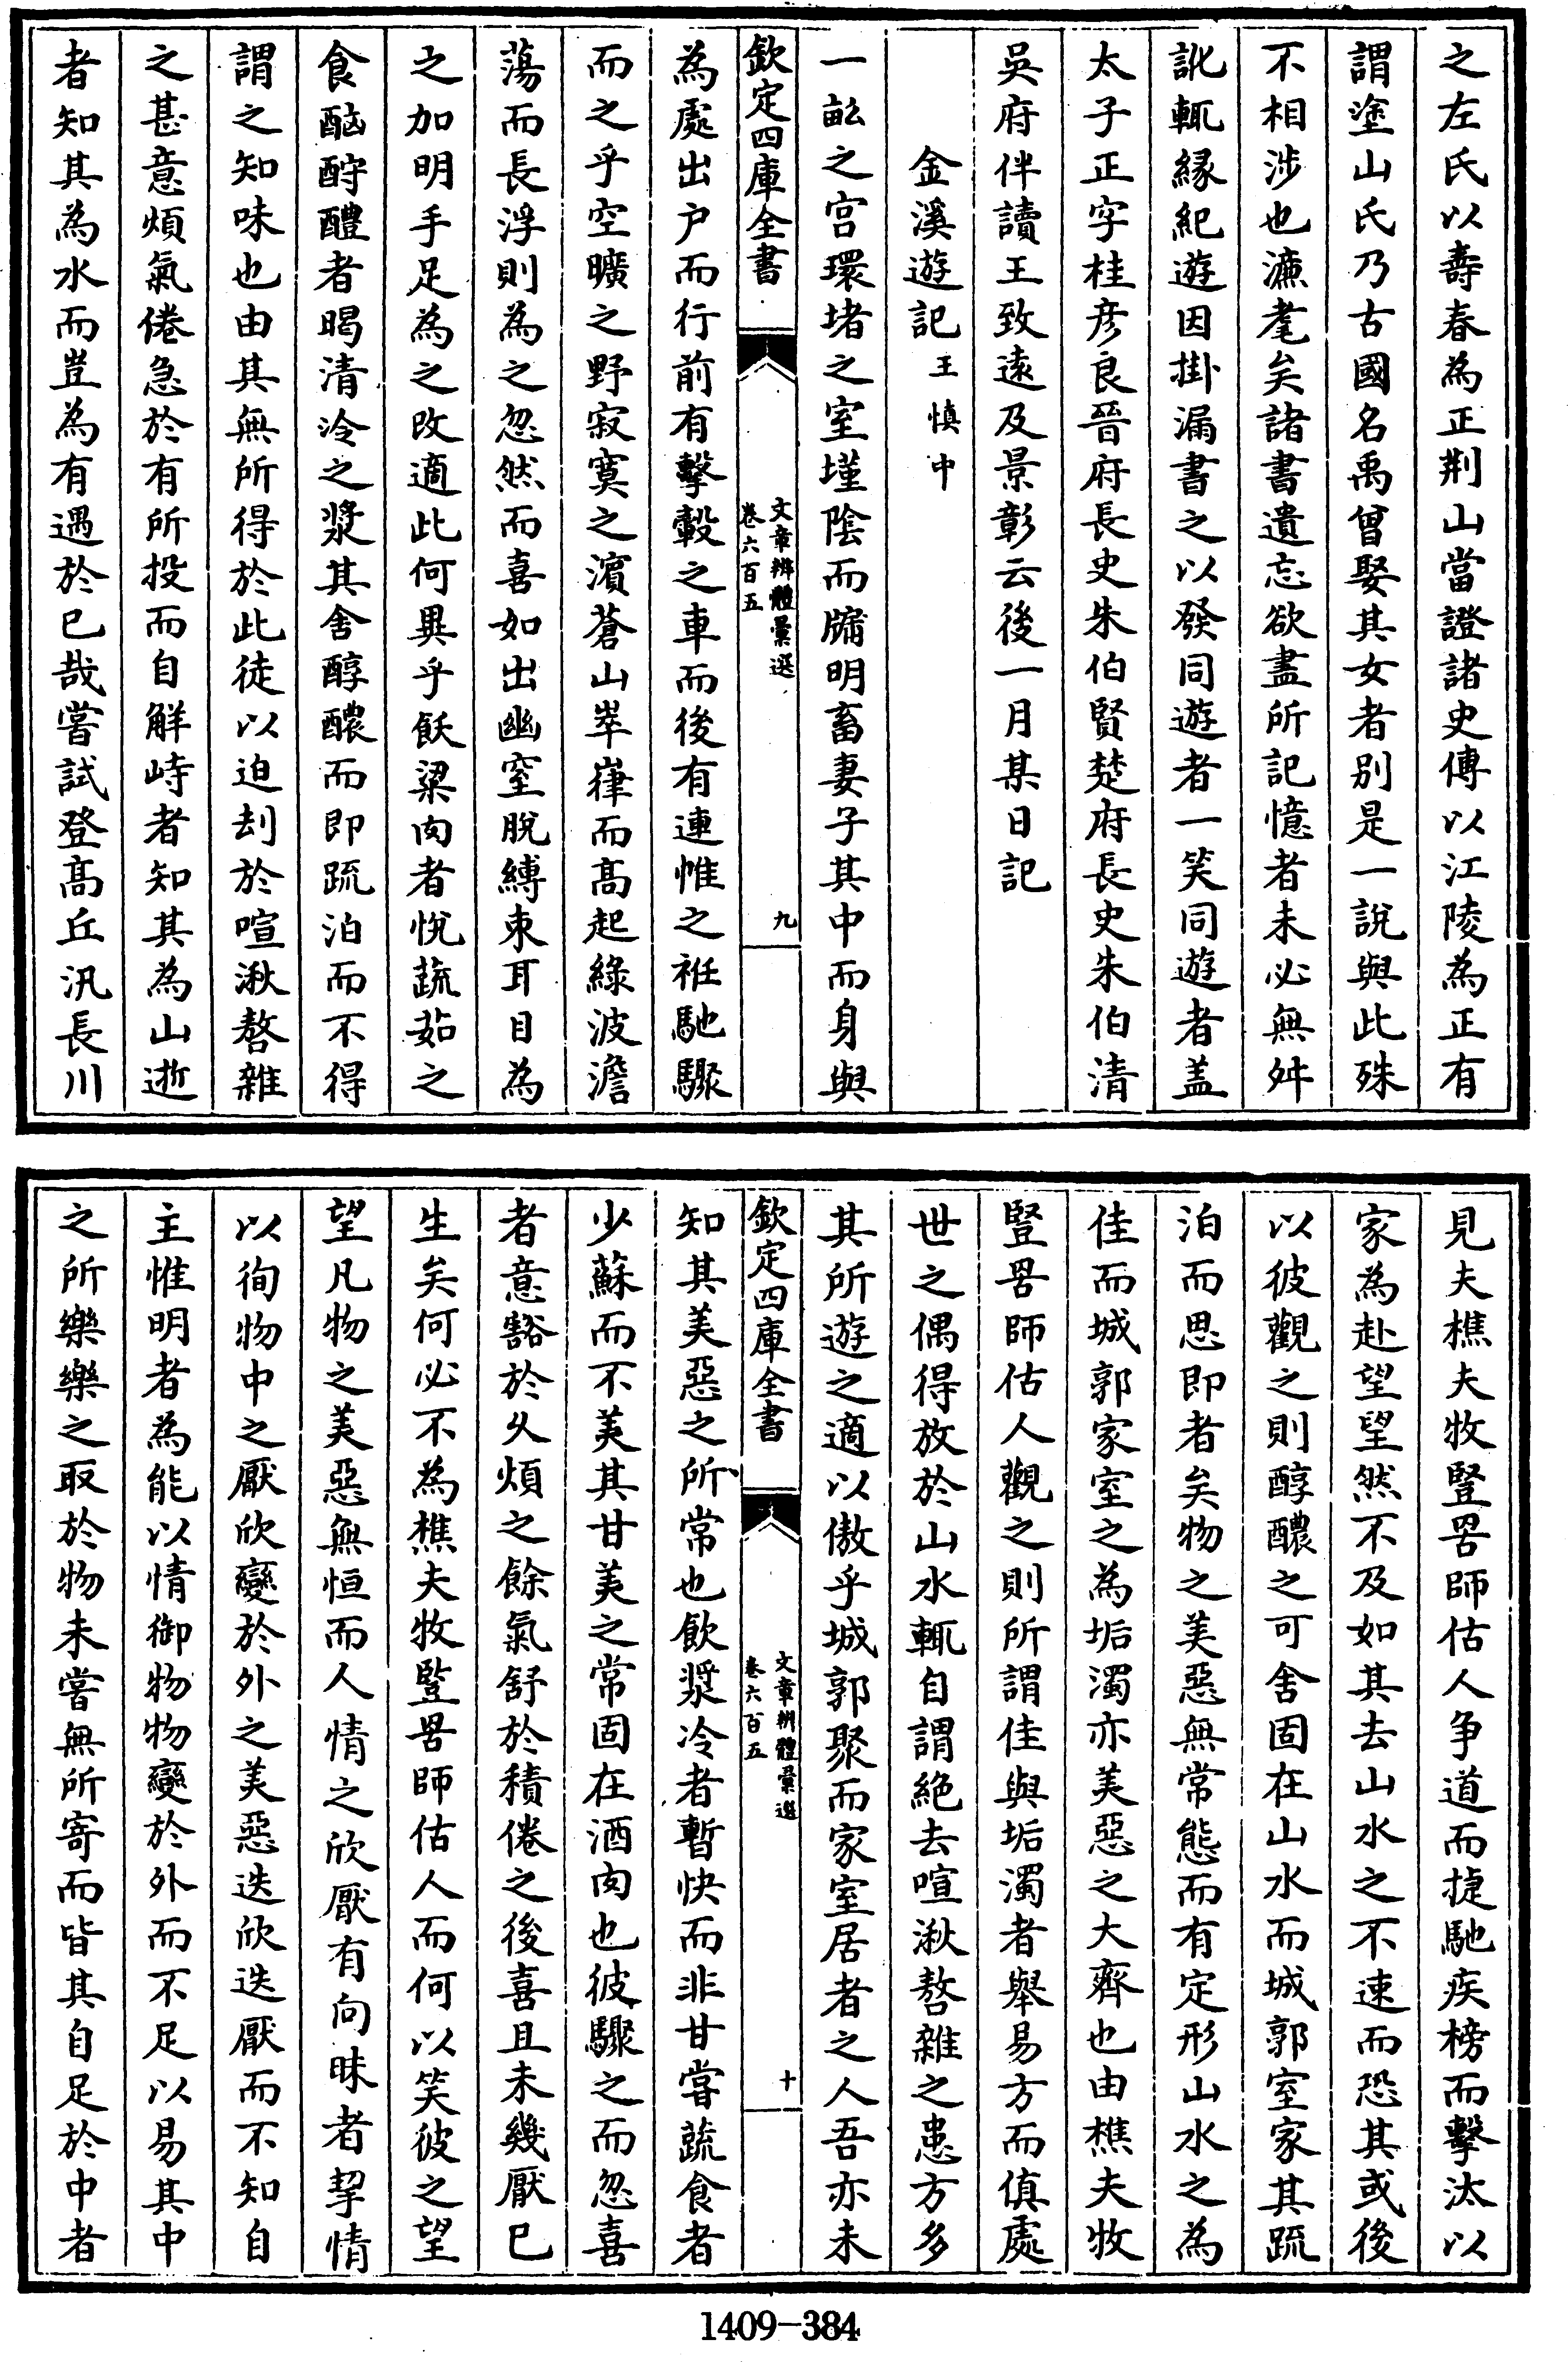 之左氏以壽春為正荆山當證諸史傳以江陵為正有
謂塗山氏乃古國名禹曾娶其女者別是一説與此殊
不相涉也濂耄矣諸書遺忘欲盡所記憶者未必無舛
訛輒緣紀遊因掛漏書之以發同遊者一笑同遊者盖
太子正字桂彦良晉府長史朱伯賢楚府長史朱伯清
吳府伴讀王致遠及景彰云後一月某日記
金溪遊記王慎中
一畝之宫環堵之室墐陰而牖明畜妻子其中而身與
欽定四庫全書
文章辨體彙選
卷六百五
九
為處出户而行前有擊轂之車而後有連帷之袵馳驟
而之乎空曠之野寂寞之濱蒼山崒嵂而髙起綠波澹
蕩而長浮則為之忽然而喜如出幽窒脫縛束耳目為
之加明手足為之改適此何異乎飫粱肉者悅蔬茹之
食酗酹醴者暍清冷之漿其舍醇醲而即疏泊而不得
謂之知味也由其無所得於此徒以迫刦於喧湫嗸雜
之甚意煩氣倦急於有所投而自觧峙者知其為山逝
者知其為水而豈為有遇於已哉嘗試登髙丘汎長川
見夫樵夫牧豎罟師估人争道而捷馳疾榜而擊汰以
家為赴望望然不及如其去山水之不速而恐其或後
以彼觀之則醇醲之可舍固在山水而城郭室家其疏
泊而思即者矣物之美惡無常態而有定形山水之為
佳而城郭家室之為垢濁亦美惡之大齊也由樵夫牧
豎罟師估人觀之則所謂佳與垢濁者舉易方而偩處
世之偶得放於山水輒自謂絶去喧湫嗸雜之患方多
其所遊之適以傲乎城郭聚而家室居者之人吾亦未
欽定四庫全書
文章辨體彙選
卷六百五
十
知其美惡之所常也飲漿冷者暫快而非甘嘗蔬食者
少蘇而不美其甘美之常固在酒肉也彼驟之而忽喜
者意豁於乆煩之餘氣舒於積倦之後喜且未幾厭已
生矣何必不為樵夫牧豎罟師估人而何以笑彼之望
望凡物之美惡無恒而人情之欣厭有向昧者挈情
以徇物中之厭欣變於外之美惡迭欣迭厭而不知自
主惟明者為能以情御物物變於外而不足以易其中
之所樂樂之取於物未嘗無所寄而皆其自足於中者
1409-384